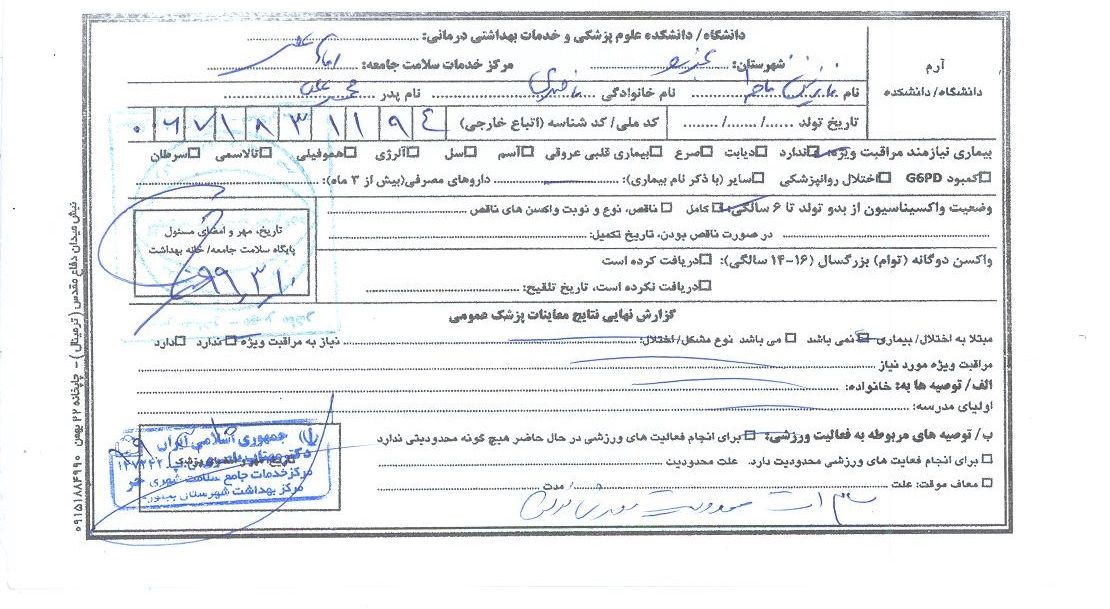 دانشگاه/ دانشکده علوم پزشکی و خدمات بهداشتی درمانی:
آرم
دانشگاه/ دانشکده
شهرستان: بجنورد مرکز خدمات سلامت جامعه:
نام نام خانوادگی نام پدر
تاریخ تولد ....../......./........ کد ملی/ کد شناسه (اتباع خارجی) ۰۶۷۱۸۳۱۱۹۴
بیماری نیازمند مراقبت ویژه: ندارد دیابت صرع بیماری قلبی عروقی آسم سل آلرژی هموفیلی تالاسمی سرطان
کمبود G6PD اختلال روانپزشکی سایر (با ذکر نام بیماری): داروهای مصرفی(بیش از ۳ ماه):
وضعیت واکسیناسیون از بدو تولد تا ۶ سالگی: کامل ناقص، نوع و نوبت واکسن های ناقص
در صورت ناقص بودن، تاریخ تکمیل:
واکسن دوگانه (توام) بزرگسال (۱۶-۱۴ سالگی): دریافت کرده است
دریافت نکرده است، تاریخ تلقیح:
تاریخ، مهر و امضای مسئول
پایگاه سلامت جامعه/ خانه بهداشت
۹۹/۳/۱۰
گزارش نهایی نتایج معاینات پزشک عمومی
مبتلا به اختلال/ بیماری نمی باشد می باشد نوع مشکل/اختلال: نیاز به مراقبت ویژه ندارد دارد
مراقبت ویژه مورد نیاز
الف/ توصیه ها به: خانواده:
اولیای مدرسه:
ب/ توصیه های مربوطه به فعالیت ورزشی: برای انجام فعالیت های ورزشی در حال حاضر هیچ گونه محدودیتی ندارد
برای انجام فعالیت های ورزشی محدودیت دارد. علت محدودیت
معاف موقت: علت مدت
جمهوری اسلامی ایران
مرکز خدمات جامع سلامت شهری
مرکز بهداشت شهرستان بجنورد
نبش میدان دفاع مقدس (ترمینال) - چاپخانه ۲۲ بهمن ۰۹۱۵۱۸۸۴۹۹۰